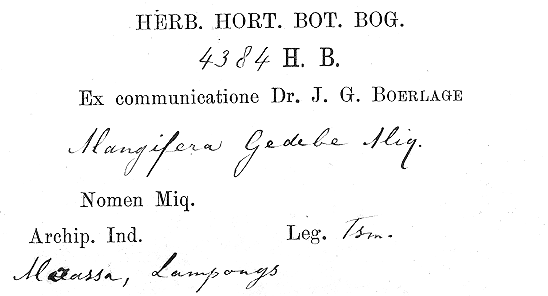 HERB. HORT. BOT. BOG.
4384 H. B.
Ex communicatione Dr. J. G. BOERLAGE
Mangifera Gedebe Miq.
Nomen Miq.
Archip. Ind. Leg. Tsm.
Lampongs